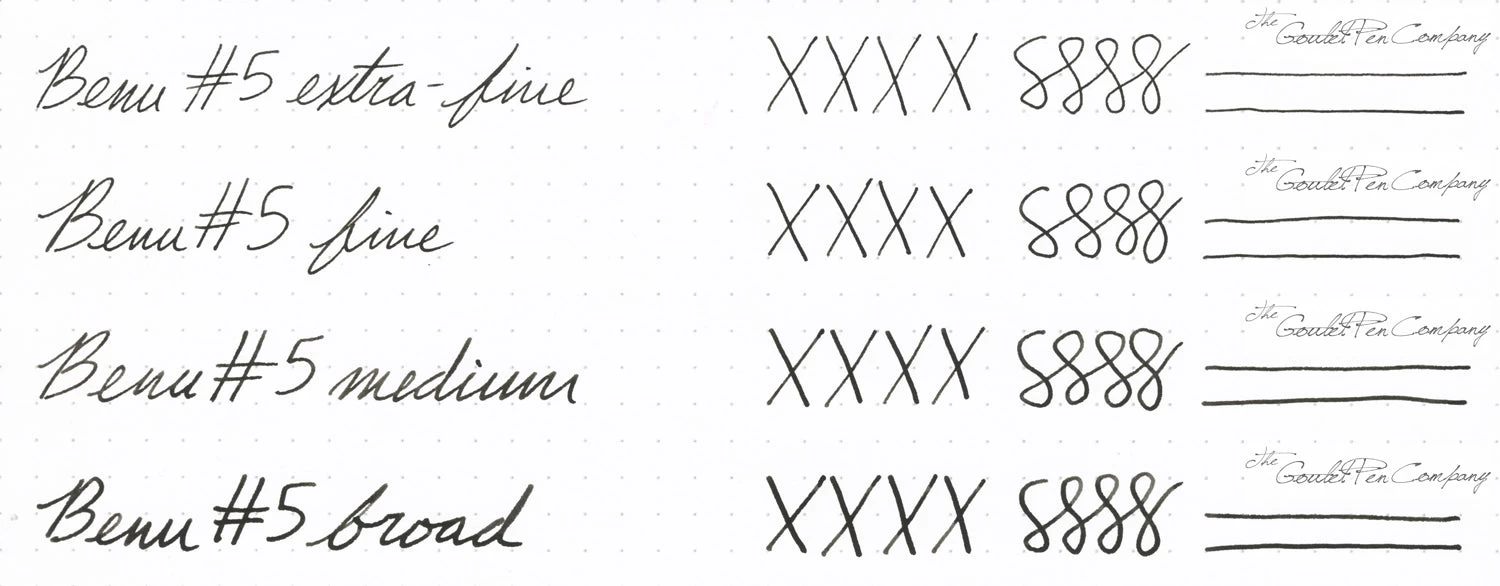 Benu #5 extra-fine XXXX 8888 The Goulet Pen Company
Benu #5 fine XXXX 8888 The Goulet Pen Company
Benu #5 medium XXXX 8888 The Goulet Pen Company
Benu #5 broad XXXX 8888 The Goulet Pen Company